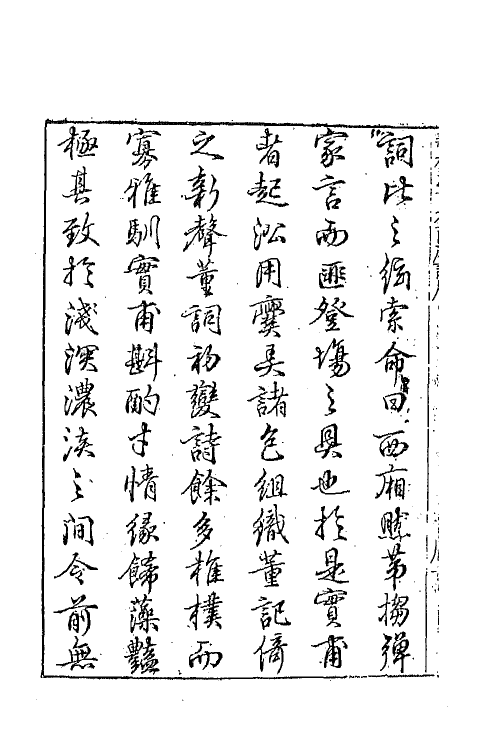 詞比之絃索命曰西廂然第搊彈
家言而匪登塲之具也於是實甫
者起㳂用爨弄諸色組織董記倚
之新聲董詞初變詩餘多椎樸而
寡雅馴實甫斟酌才情緣飾藻豔
極其致於淺深濃淡之間令前無